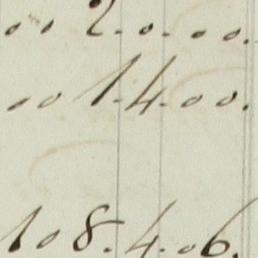 .. 2.0...0.
..0 1.4.00.
108.4.06.